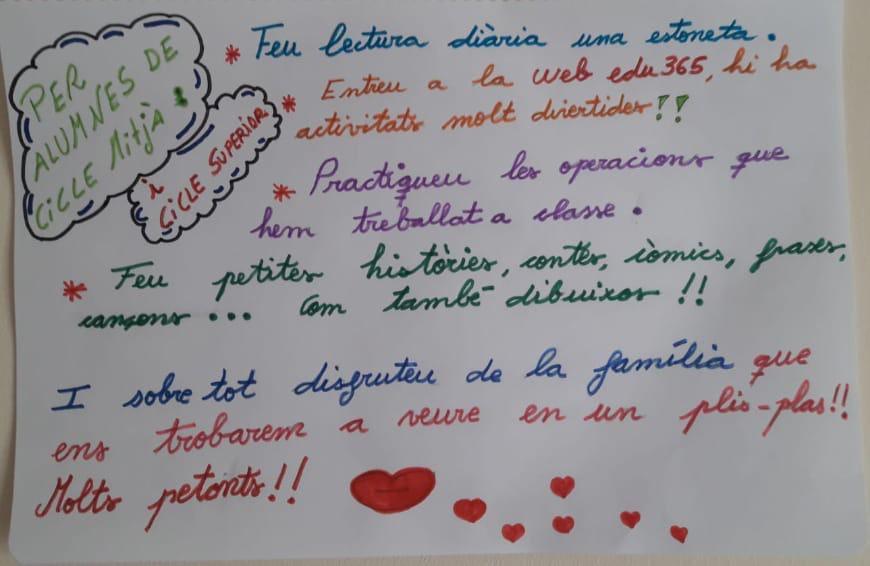 PER
ALUMNES DE
CICLE Mitjà
i
CICLE SUPERIOR.
* Feu lectura diària una estoneta.
* Entreu a la web edu365, hi ha
activitats molt divertides!!
* Practiqueu les operacions que
hem treballat a classe.
* Feu petites històries, contes, còmics, frases,
cançons... Com també dibuixos!!
I sobre tot disfruteu de la família que
ens trobarem a veure en un plis-plas!!
Molts petonts!!